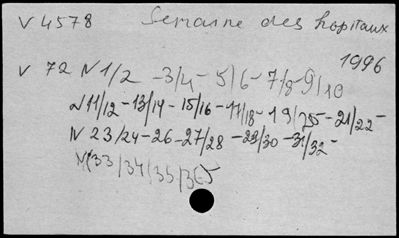 V 4578 Semaine des hopitaux
1996
V 72 N 1/2 -3/4- 5/6- 7/8-9/10
N 11/12-13/14-15/16-17/18-19/20-21/22-
N 23/24-26-27/28-29/30-31/32-
N 33/34/35/36